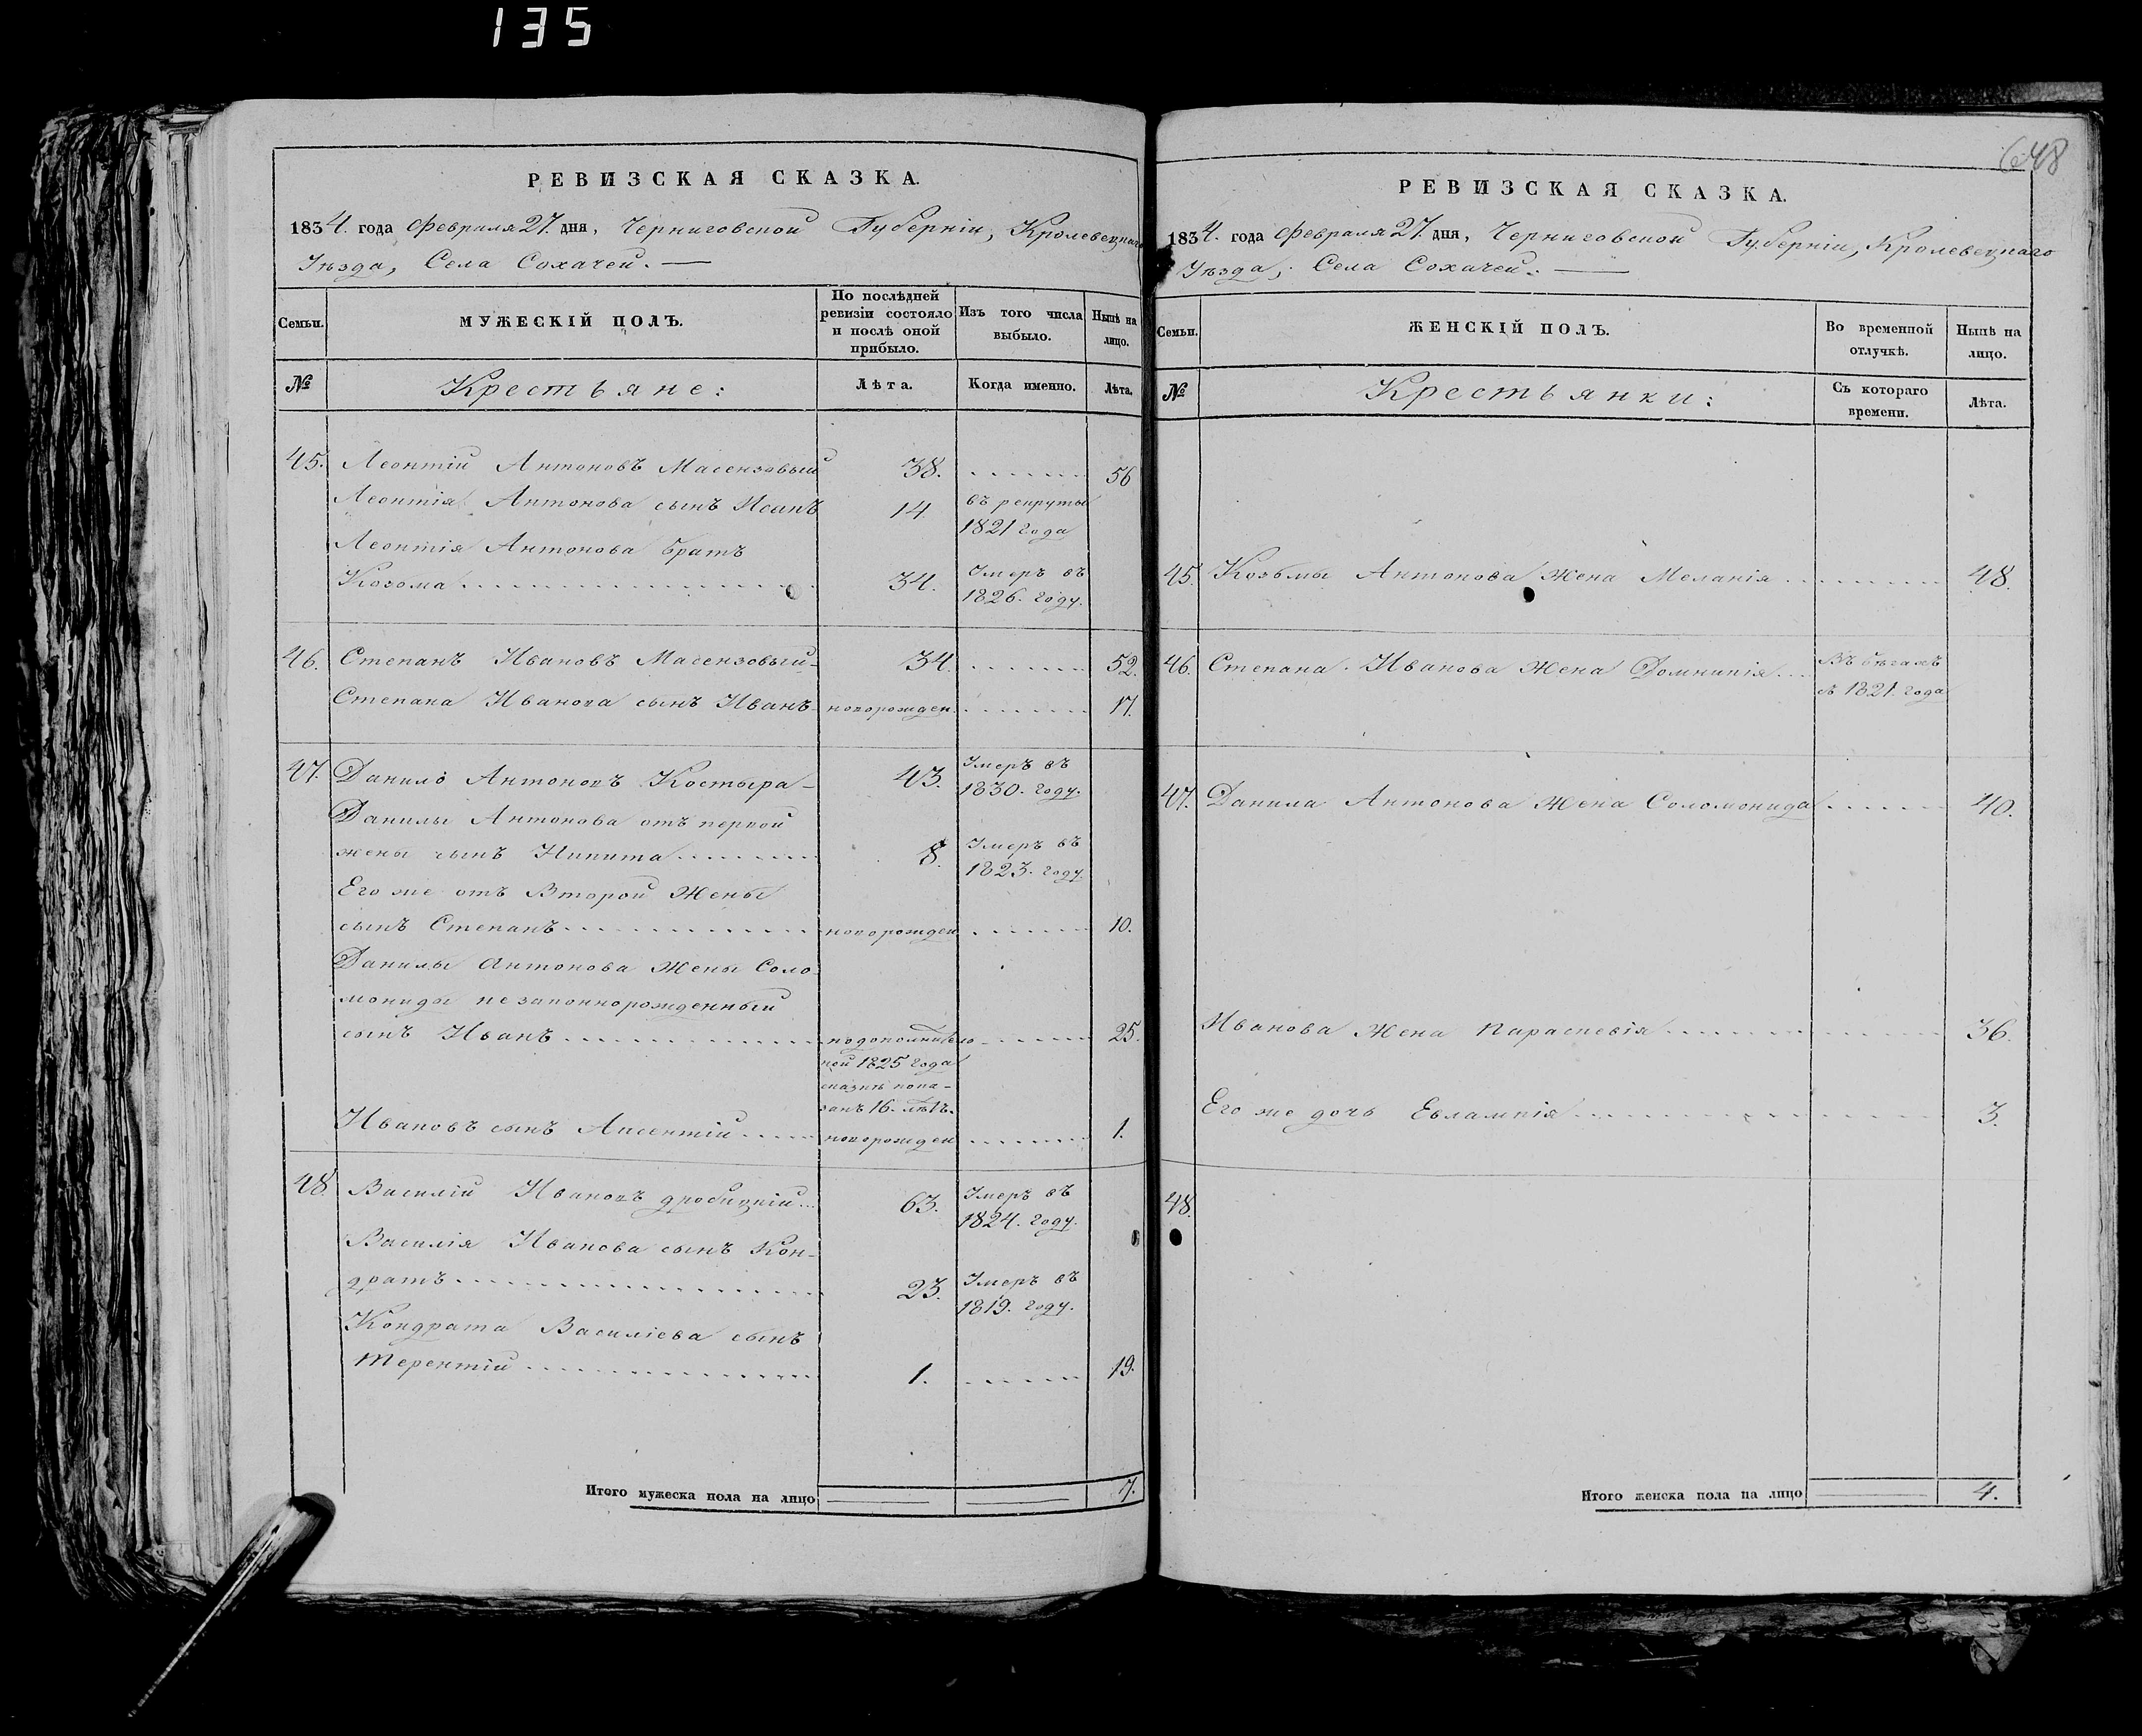 135
РЕВИЗСКАЯ СКАЗКА.
1834. года Февраля 27. дня, Черниговской Губерніи, Кролевецкаго
Уѣзда, Села Сохачей. —
Семьи.
МУЖЕСКІЙ ПОЛЪ.
По послѣдней ревизіи состояло и послѣ оной прибыло.
Изъ того числа выбыло.
Нынѣ на лицо.
№
Крестьяне:
Лѣта.
Когда именно.
Лѣта.
45. Леонтій Антоновъ Масензовый 38. 56
Леонтія Антонова сынъ Исакъ 14. въ рекруты
1821 года
Леонтія Антонова братъ
Козома 34. Умеръ въ
1826. году.
46. Степанъ Ивановъ Масензовый 34. 52.
Степана Иванова сынъ Иванъ новорожден. 17.
47. Данило Антоновъ Костыра 43. Умеръ въ
1830. году.
Данилы Антонова отъ первой
жены сынъ Никита 8. Умеръ въ
1823. году.
Его же отъ Второй Жены
сынъ Степанъ новорожден 10.
Данилы Антонова Жены Соло
мониды незаконнорожденный
сынъ Иванъ подополнитело 25.
ной 1825 года
сказкѣ пока-
занъ 16. лѣтъ.
Ивановъ сынъ Авсентій новорожден 1.
48. Василій Ивановъ дробицкій 63. Умеръ въ
1824. году.
Василія Иванова сынъ Кон-
дратъ 23. Умеръ въ
1819. году.
Кондрата Василіева сынъ
Терентій 1. 19.
Итого мужеска пола на лицо 7.
648
РЕВИЗСКАЯ СКАЗКА.
1834. года Февраля 27. дня, Черниговской Губерніи, Кролевецкаго
Уѣзда, Села Сохачей. —
Семьи.
ЖЕНСКІЙ ПОЛЪ.
Во временной отлучкѣ.
Нынѣ на лицо.
№
Крестьянки:
Съ котораго времени.
Лѣта.
45. Козьмы Антонова Жена Меланія 48.
46. Степана Иванова Жена Домникія Въ бѣгахъ
съ 1821. года
47. Данила Антонова Жена Соломонида 40.
Иванова Жена Параскевія 36.
Его же дочь Евлампія 3.
48.
Итого женска пола на лицо 4.